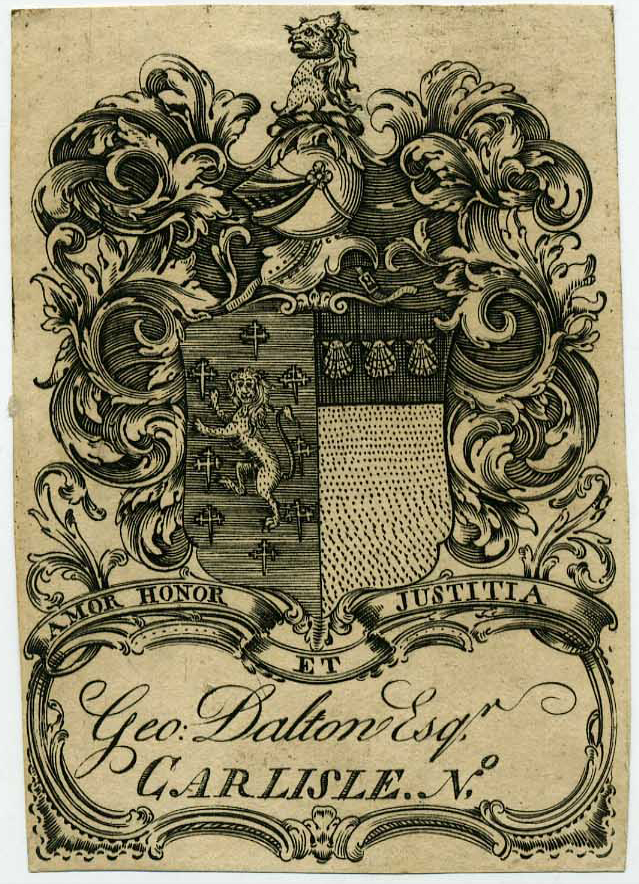 AMOR HONOR ET JUSTITIA
Geo: Dalton Esqr.
CARLISLE. No.